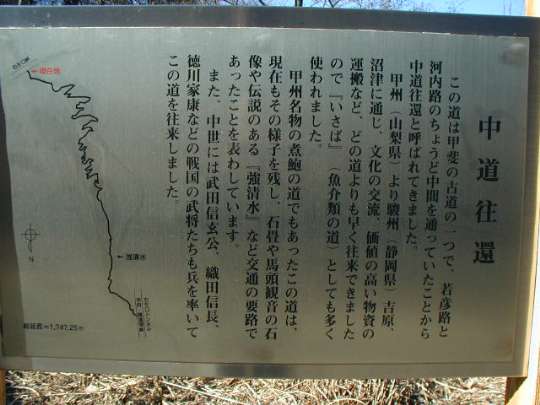 中道往還
この道は甲斐の古道の一つで、若彦路と
河内路のちょうど中間を通っていたことから
中道往還と呼ばれてきました。
甲州（山梨県）より駿州（静岡県）吉原、
沼津に通じ、文化の交流、価値の高い物資の
運搬など、どの道よりも早く往来できました
ので『いさば』（魚介類の道）としても多く
使われました。
甲州名物の煮鮑の道でもあったこの道は、
現在もその様子を残し、石畳や馬頭観音の石
像や伝説のある『強清水』など交通の要路で
あったことを表わしています。
また、中世には武田信玄公、織田信長、
徳川家康などの戦国の武将たちも兵を率いて
この道を往来しました。
←現在地
←強清水
N
総延長＝1,747.25m